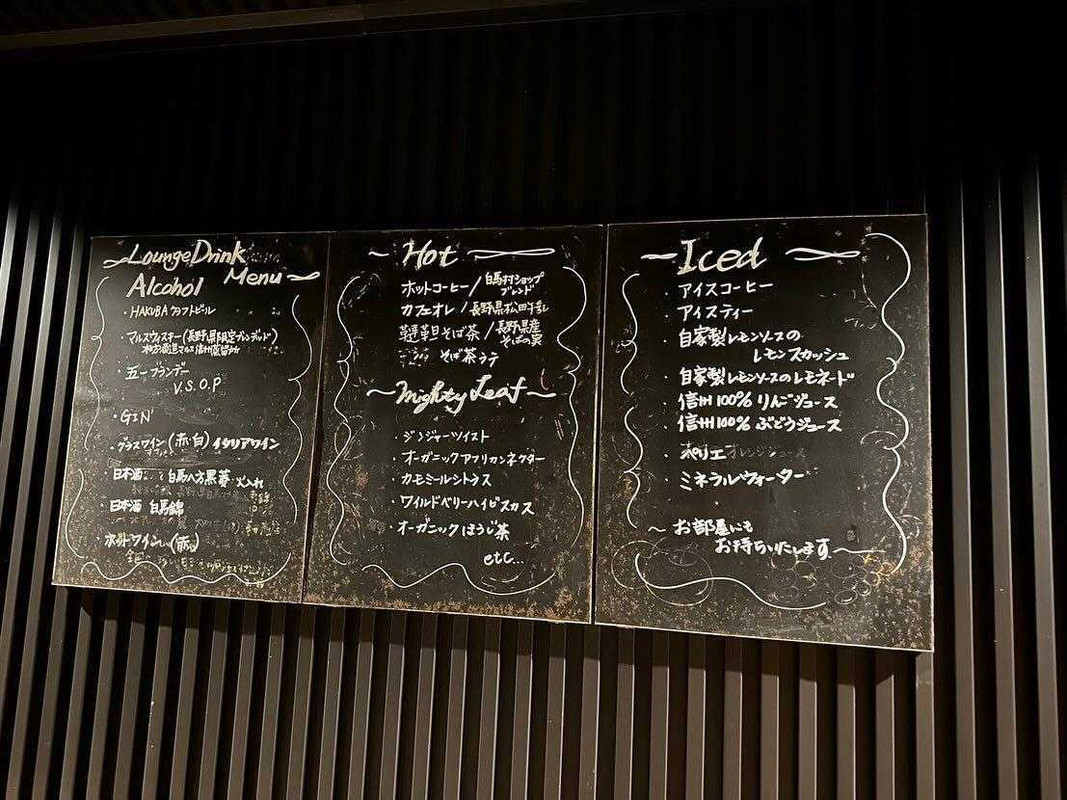 Lounge Drink
Menu
Alcohol
・HAKUBA クラフトビール
マルスウィスキー(長野県限定ブレンデッド)
・五一ブランデー
V.S.O.P
・GIN
・グラスワイン(赤・白)イタリアワイン
日本酒 白馬八方黒菱 火入れ
・日本酒 白馬錦
ホットワイン(赤)
~Hot
ホットコーヒー/白馬村ショップ
ブレンド
カフェオレ/長野県松田牛乳
韃靼そば茶/長野県産
そばの実
そば茶ラテ
~Mighty Leaf~
・ジンジャーツイスト
・オーガニックアフリカンネクター
・カモミールシトラス
・ワイルドベリーハイビスカス
・オーガニックほうじ茶
etc...
~Iced
・アイスコーヒー
・アイスティー
・自家製レモンソースの
レモンスカッシュ
・自家製レモンソースのレモネード
・信州100% りんごジュース
・信州100% ぶどうジュース
・ペリエ
・ミネラルウォーター
~お部屋にも
お持ちいたします~